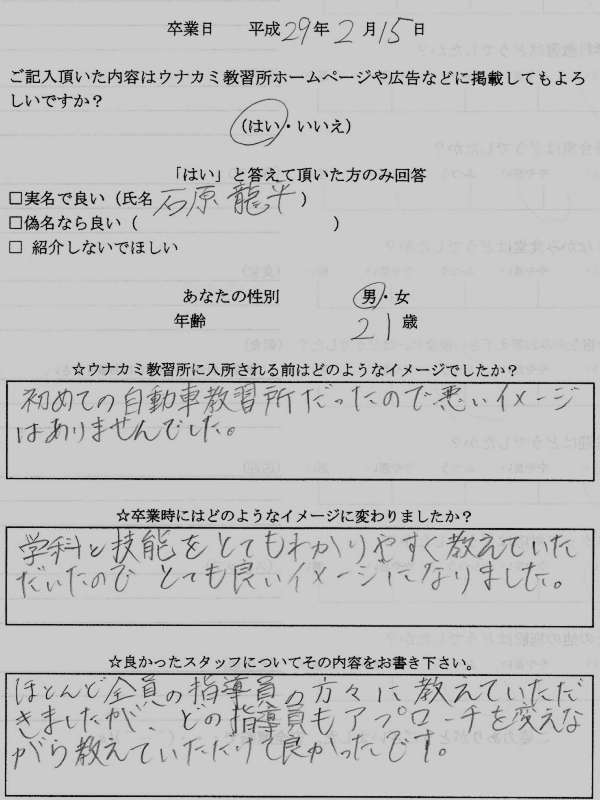 卒業日 平成29年2月15日
ご記入頂いた内容はウナカミ教習所ホームページや広告などに掲載してもよろ
しいですか？
(はい・いいえ)
「はい」と答えて頂いた方のみ回答
□実名で良い（氏名 石原 龍平）
□偽名なら良い（ ）
□ 紹介しないでほしい
あなたの性別 男・女
年齢 21歳
☆ウナカミ教習所に入所される前はどのようなイメージでしたか？
初めての自動車教習所だったので悪いイメージ
はありませんでした。
☆卒業時にはどのようなイメージに変わりましたか？
学科と技能をとてもわかりやすく教えていた
だいたので とても良いイメージになりました。
☆良かったスタッフについてその内容をお書き下さい。
ほとんど全員の指導員の方々に教えていただ
きましたが、どの指導員もアプローチを変えな
がら教えていただけて良かったです。